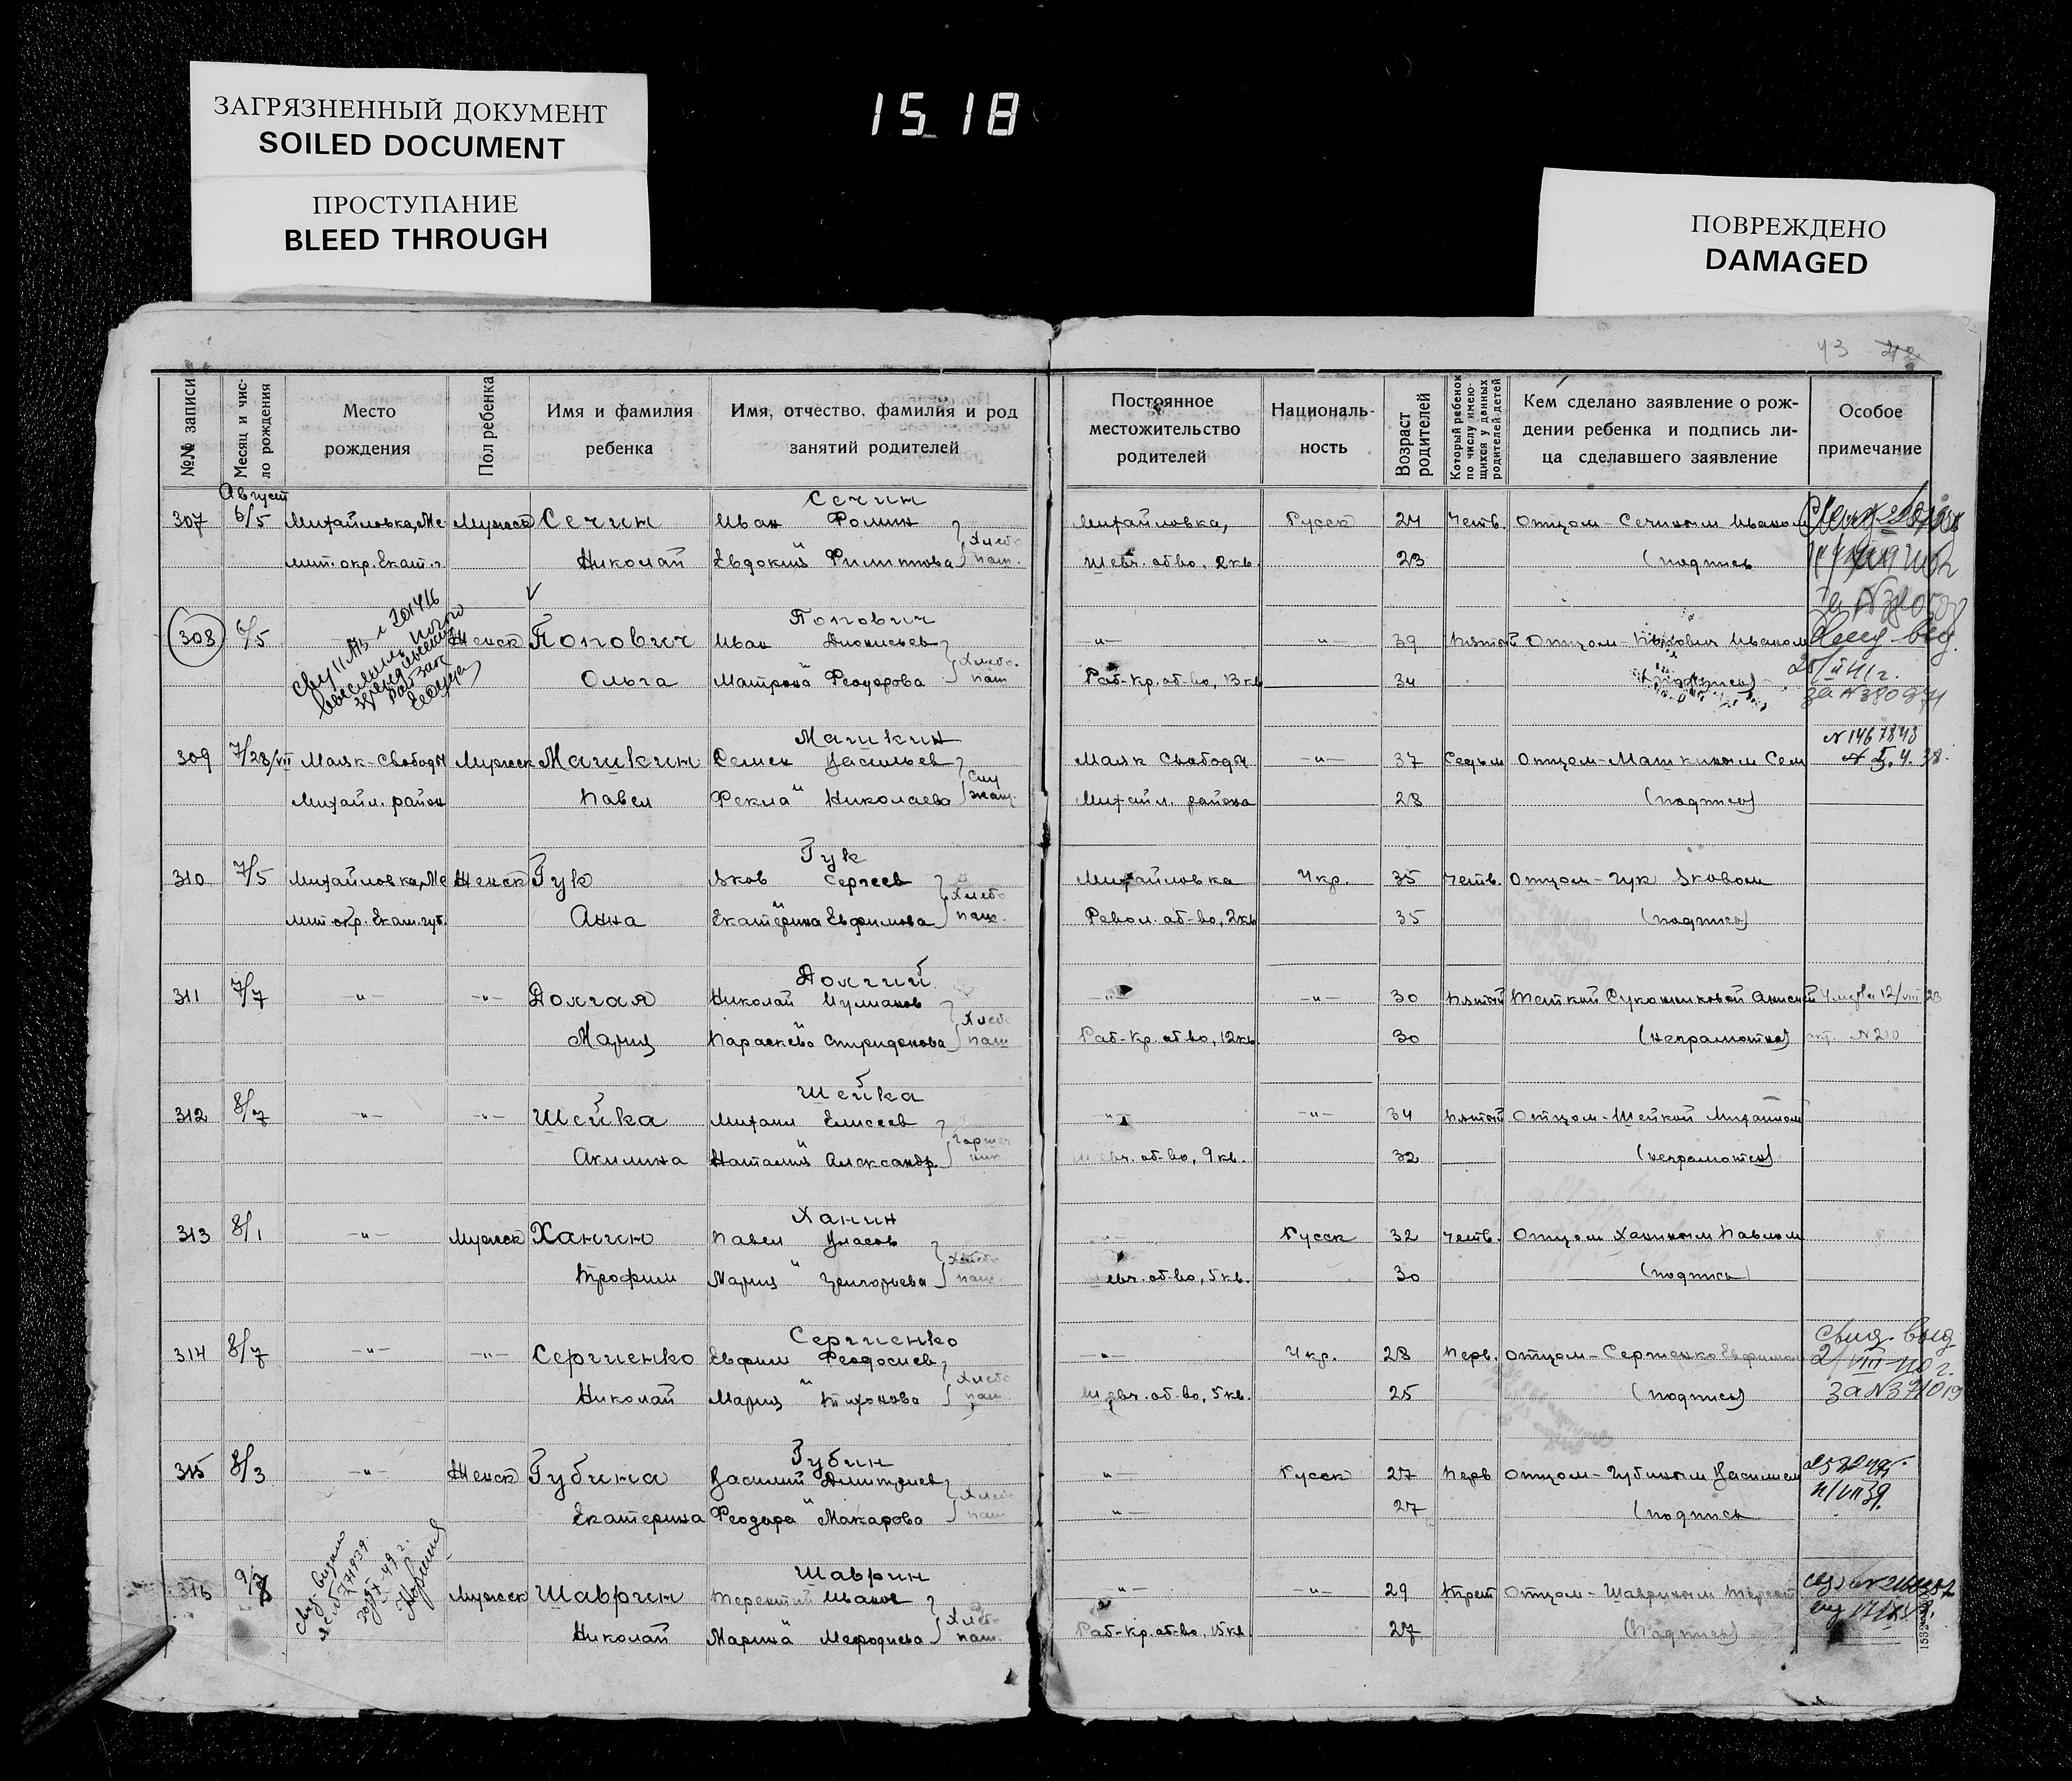 ЗАГРЯЗНЕННЫЙ ДОКУМЕНТ
SOILED DOCUMENT
ПРОСТУПАНИЕ
BLEED THROUGH
15 18
ПОВРЕЖДЕНО
DAMAGED
43
№№ записи
Месяц и число рождения
Место рождения
Пол ребенка
Имя и фамилия ребенка
Имя, отчество, фамилия и род занятий родителей
Постоянное местожительство родителей
Националь-ность
Возраст родителей
Который ребенок по числу имею-щихся у данных родителей детей
Кем сделано заявление о рож-дении ребенка и подпись ли-ца сделавшего заявление
Особое примечание
Август
Сечин
307 6/5 Михайловка, Ме Мужск Сечин Иван Фомин Хлебо Михайловка, Русск 24 Четв. Отцом - Сечиным Иваном
лит. окр. Екат. г Николай Евдокия Филиппова паш. Шевч. об-во, 2 кв. 23 (подпись
Попович
308 6/5 Женск Попович Иван Дионисьев Хлебо. -"- -"- 39 Пятый Отцом - Попович Иваном
Ольга Матрона Феодорова паш Раб-кр. об-во, 13 кв 34 (подпись)
за N 380971
Машкин
N 1467848
309 7/28/VII Маяк-Свободы Мужск Машкин Семен Васильев Маяк Свободы -"- 37 Седьм Отцом - Машкиным Сем
Михайл. район Павел Фекла Николаева Михайл. района 28 (подпись)
Гук
310 7/5 Михайловка, Ме Женск Гук Яков Сергеев Хлебо Михайловка Укр. 35 Четв. Отцом - Гук Яковом
лит. окр. Екат. губ. Анна Екатерина Евфимова паш. Револ. об-во, 2 кв 35 (подпись)
Долгий
311 7/7 -"- -"- Долгая Николай Хлебо -"- -"- 30 Пятый 12/VIII 23
Мария Параскева Спиридонова паш Раб-кр. об-во, 12 кв. 30 (неграмотна) N 210
Шейка
312 8/7 -"- -"- Шейка Михаил Елисеев -"- -"- 34 Пятый Отцом - Шейкой Михаилом
Акилина Наталия Александр. об-во, 9 кв. 32 (неграмотен)
Ханин
313 8/1 -"- Мужск Ханин Павел Власов Хлебо -"- Русск 32 Четв. Отцом Ханиным Павлом
Трофим Мария Григорьева паш. Шевч. об-во, 5 кв. 30 (подпись)
Сергиенко
Свид. выд
314 8/7 -"- -"- Сергиенко Евфим Феодосиев Хлебо -"- Укр. 28 Перв. Отцом - Сергиенко Евфимом 2/VIII-40 г.
Николай Мария Тихонова паш. Шевч. об-во, 5 кв. 25 (подпись)
Губин
315 8/3 -"- Женск Губина Василий Дмитриев Хлебо " Русск 27 Перв Отцом - Губиным Василием
Екатерина Феодора Макарова паш "- 27 (подпись
Шаврин
316 Мужск Шаврин Терентий Иванов Хлебо -"- -"- 29 Трет Отцом - Шавриным Терент
Николай Марина Мефодиева паш. Раб-кр. об-во, 15 кв. 27 (подпись)